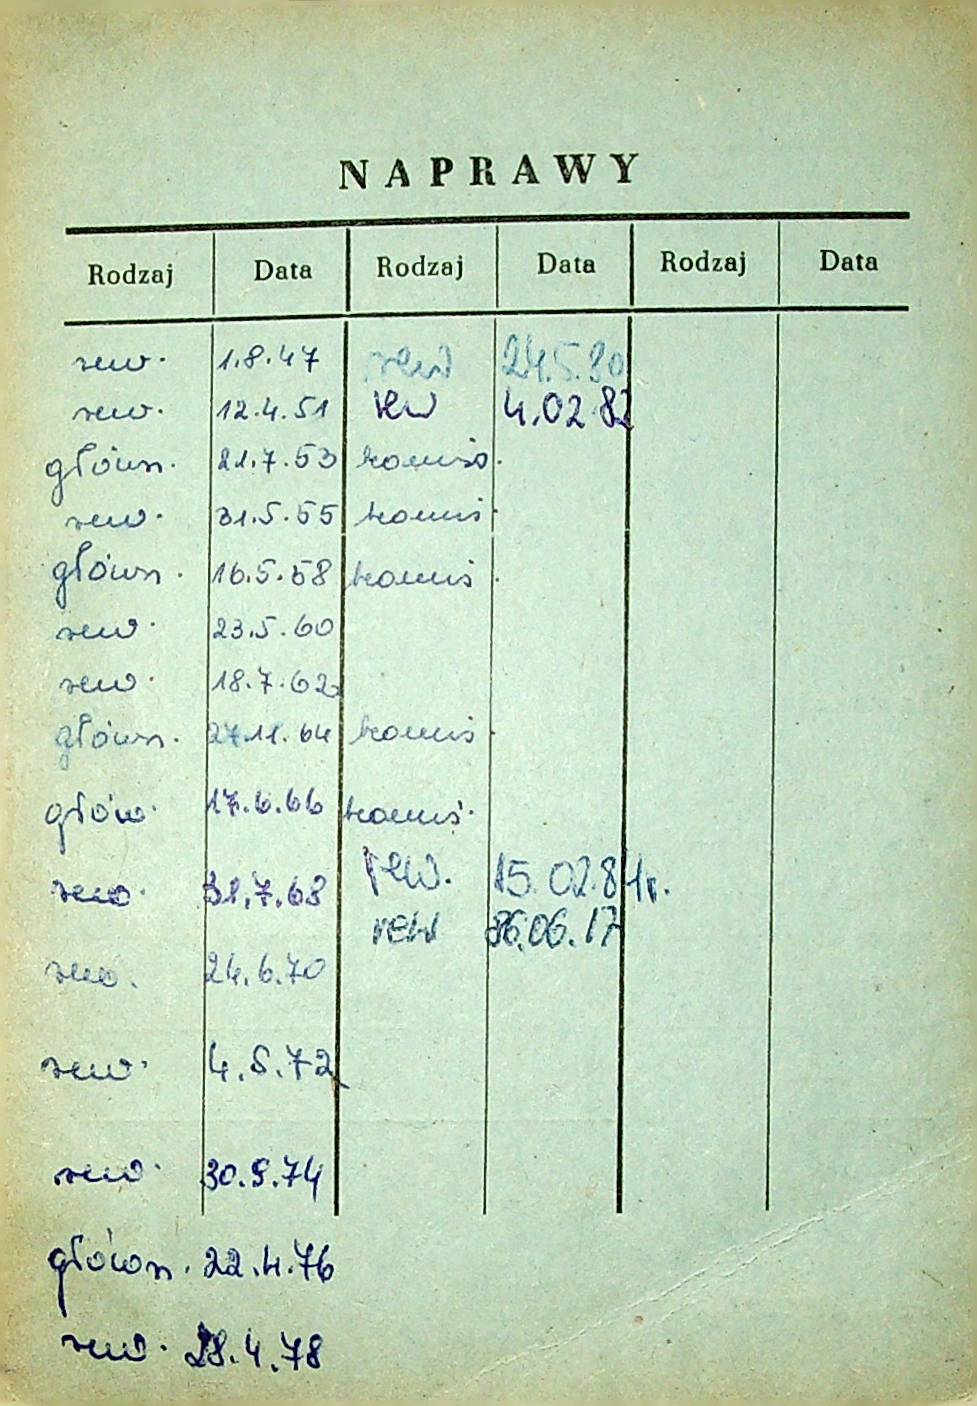 NAPRAWY
Rodzaj Data Rodzaj Data Rodzaj Data
rew. 1.8.47 rew 24.5.80
rew. 12.4.51 rew 4.02.82
główn. 21.7.53
rew. 31.5.55
główn. 16.5.58
rew. 23.5.60
rew. 18.7.62
główn. 27.11.64
głów. 17.6.66
rew. 31.7.68 rew. 15.02.84r.
rew 86.06.17
rew. 24.6.70
rew. 4.5.72
rew. 30.9.74
główn. 22.4.76
rew. 28.4.78